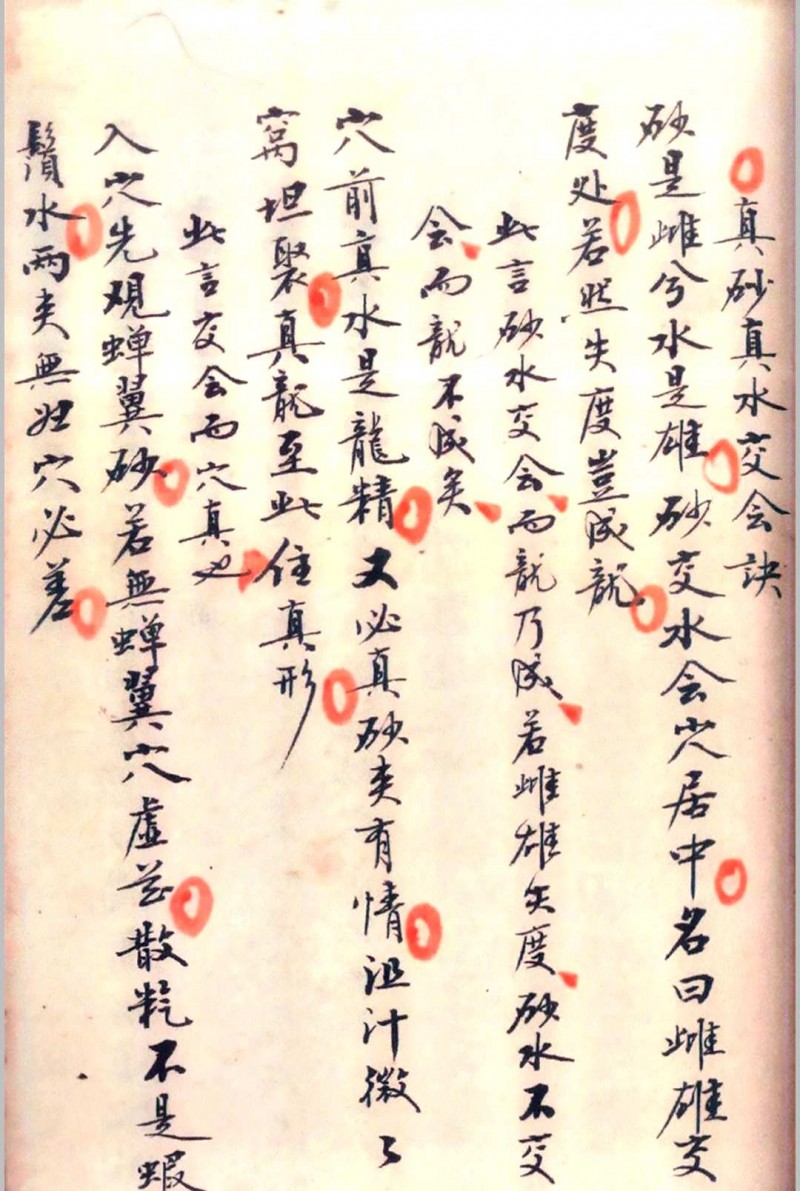 真砂真水交会訣
砂是雌兮水是雄砂交水会穴居中名曰雌雄交
度处若然失度豈成龍
此言砂水交会而龍乃成若雌雄失度砂水不交
会而龍不成矣
穴前真水是龍精又必真砂夹有情沮汁微々
窩坦聚真龍至此住真形
此言交会而穴真也
入穴先观蝉翼砂若無蝉翼穴虚花散乾不是蝦
鬚水兩夹無穴必差